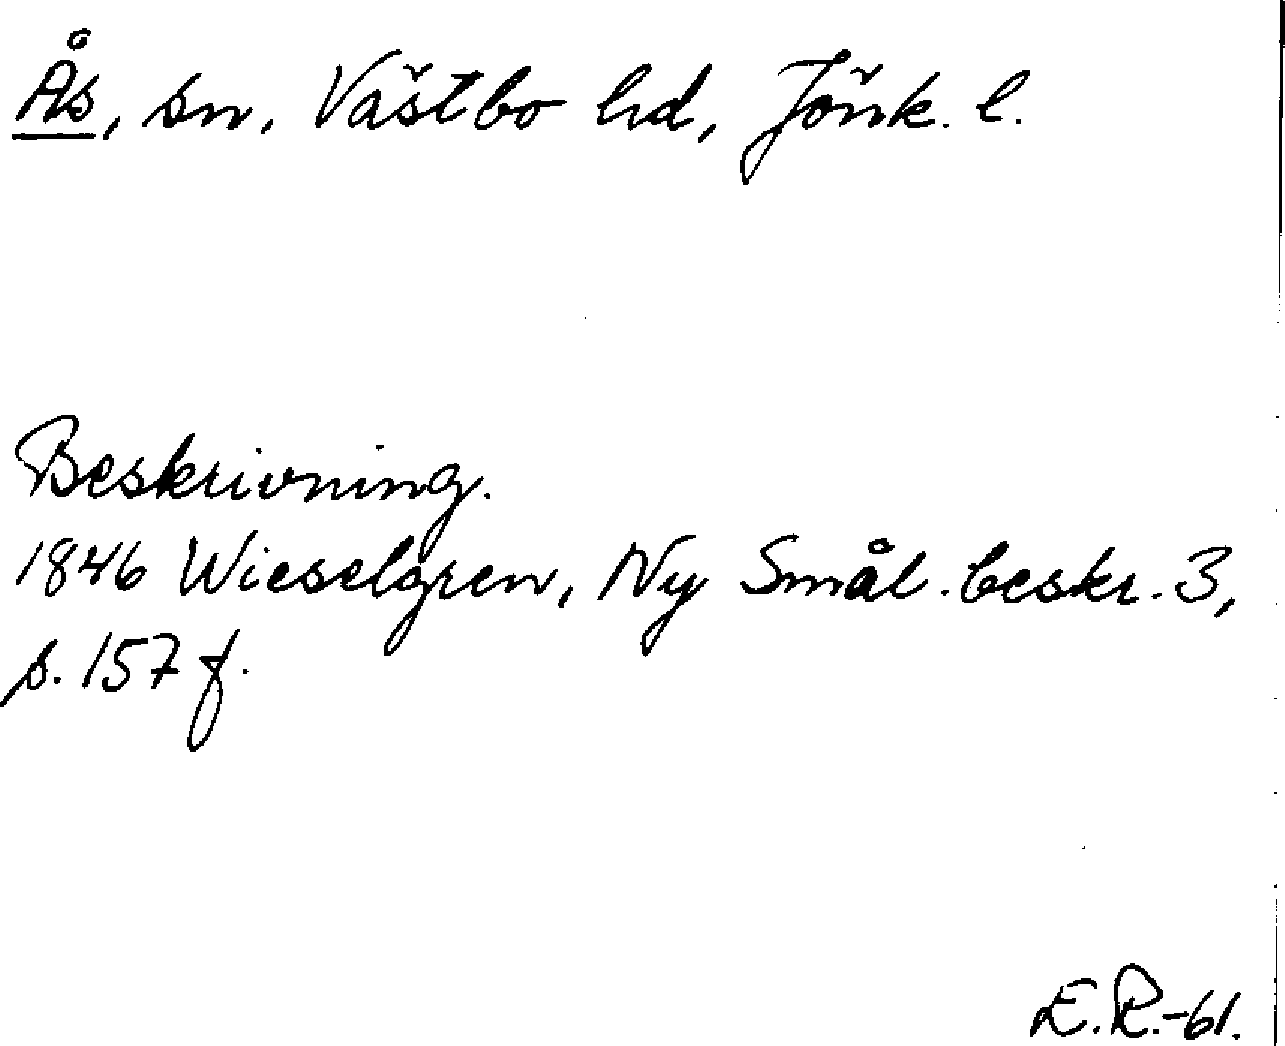 Ås, sn, Västbo hd, Jönk. l.
Beskrivning.
1846 Wieselgren, Ny Smål. beskr. 3,
s. 157 f.
E.R.-61.